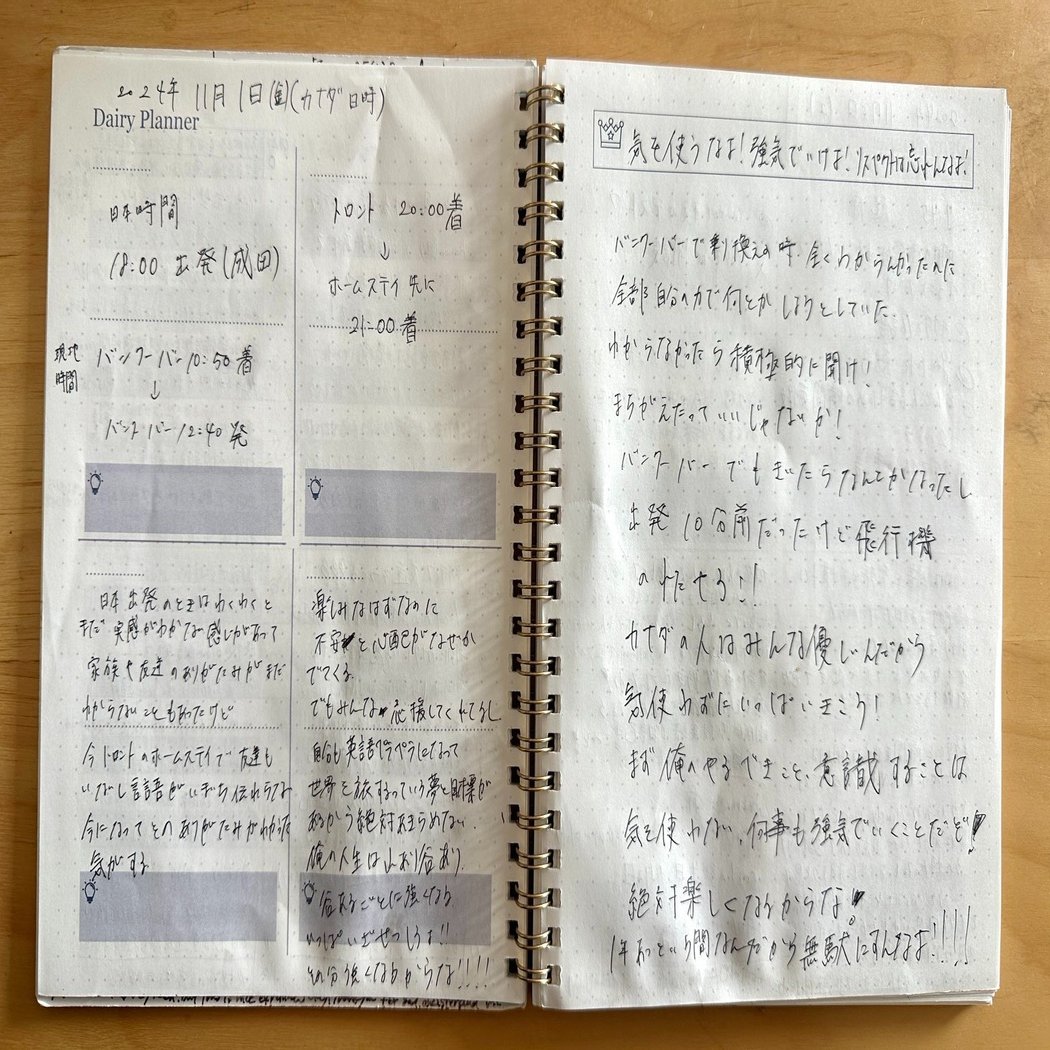 2024年 11月 1日(金)(カナダ日時)
Dairy Planner
日本時間
18:00 出発(成田)
現地
時間
バンクーバー10:50着
↓
バンクーバー12:40発
トロント 20:00着
↓
ホームステイ先に
21:00着
日本出発のときはわくわくと
まだ実感がわかない感じがあって
家族や友達のありがたみがまだ
わからないこともあったけど
今トロントのホームステイで友達も
いないし言語がいまいち伝わらない
今になってそのありがたみがわかった
気がする
楽しみなはずなのに
不安と心配がなぜか
でてくる
でもみんな応援してくれてるし
自分も英語ペラペラになって
世界を旅するっていう夢と目標が
あるから絶対あきらめない
俺の人生は山あり谷あり
谷たるごとに強くなる
いっぱいざせつしろよ!!
その分強くなるからな!!!!
気を使うなよ!強気でいけよ!リスペクトは忘れんなよ!
バンクーバーで乗り換えの時、全くわからんかったのに
全部自分の力で何とかしようとしていた
わからなかったら積極的に聞け!
まちがえたっていいじゃないか!
バンクーバーでもきいたらなんとかなったし
出発10分前だったけど飛行機
のれたやろ!!
カナダの人はみんな優しいんだから
気使わずにいっぱいきこう!
まず俺のやるべきこと、意識することは
気を使わない、何事も強気でいくことだぞ!
絶対楽しくなるからな!
1年あっという間なんだから無駄にすんなよ!!!!